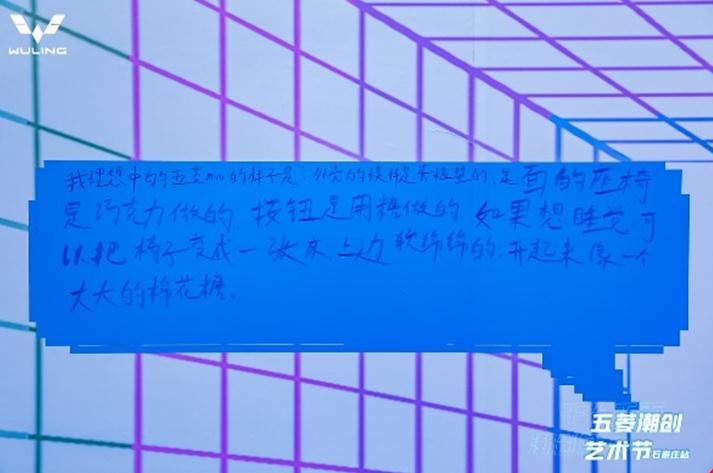 WULING
我理想中的五菱mini的样子是:外壳的模样是蛋糕型的,里面的座椅
是巧克力做的,按钮是用糖做的,如果想睡觉,可
以把椅子变成一张床,上边软绵绵的,开起来像一个
大大的棉花糖。
五菱潮创
艺术节石家庄站